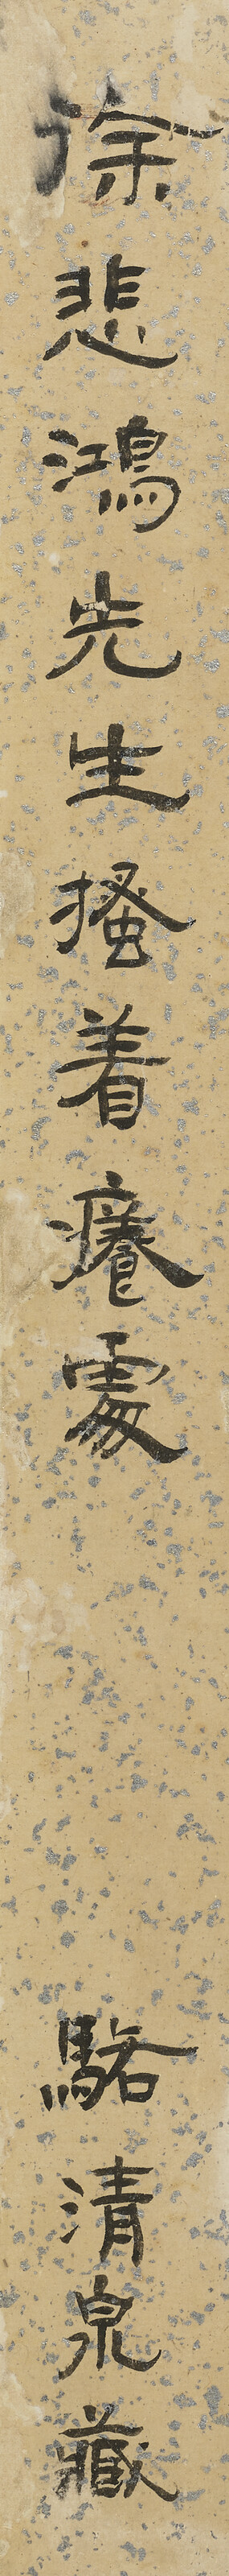 徐悲鴻先生搔着癢處
駱清泉藏